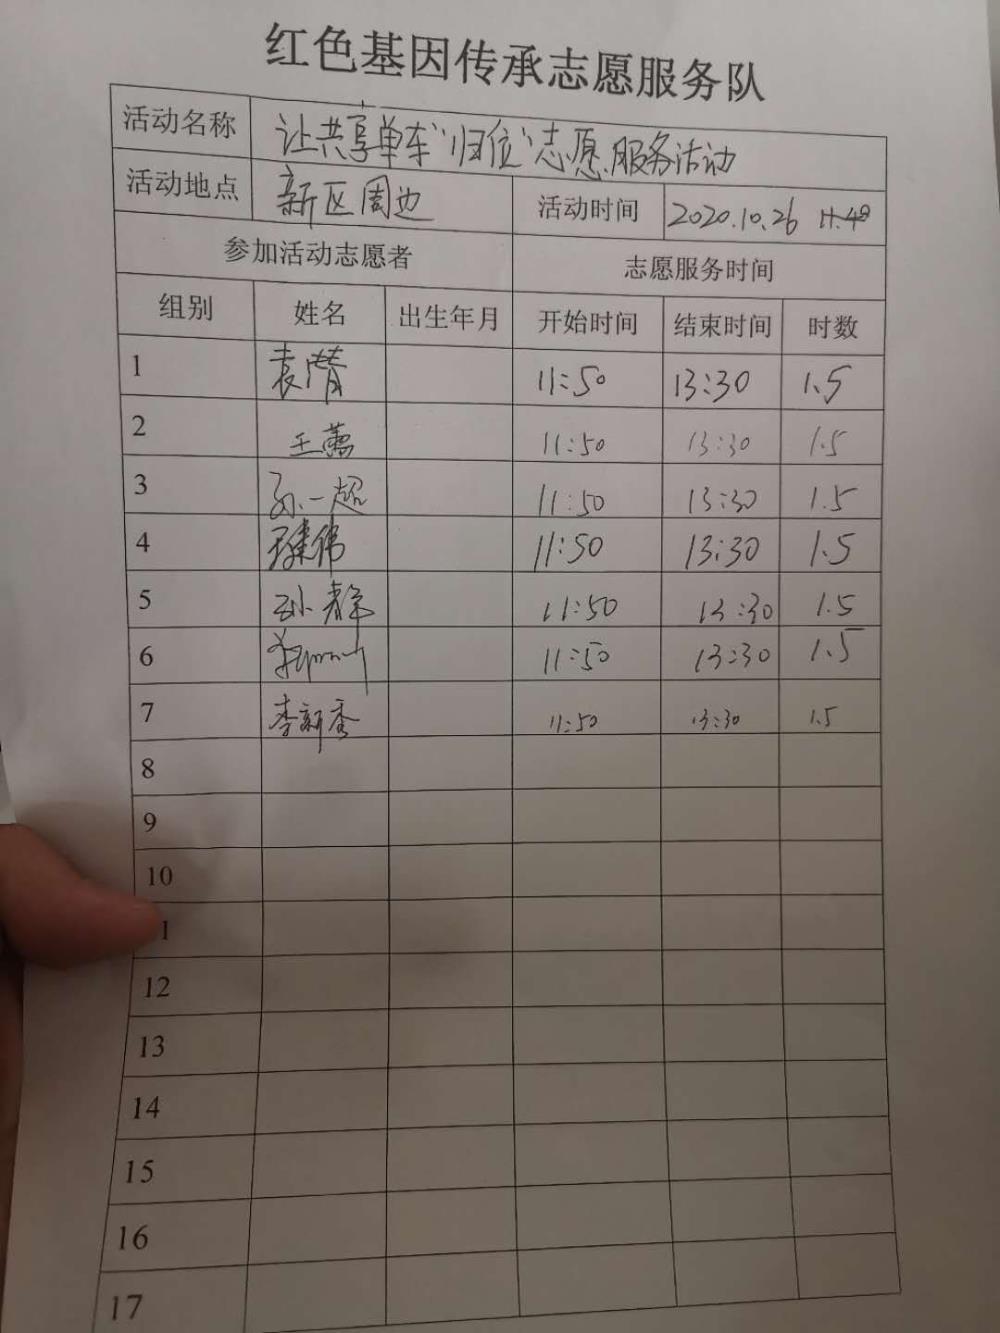 红色基因传承志愿服务队
活动名称 让共享单车"归位"志愿服务活动
活动地点 新区周边 活动时间 2020.10.26
参加活动志愿者 志愿服务时间
组别 姓名 出生年月 开始时间 结束时间 时数
1 袁 11:50 13:30 1.5
2 王 11:50 13:30 1.5
3 孙一超 11:50 13:30 1.5
4 11:50 13:30 1.5
5 孙静 11:50 13:30 1.5
6 11:50 13:30 1.5
7 李新香 11:50 13:30 1.5
8
9
10
1
12
13
14
15
16
17